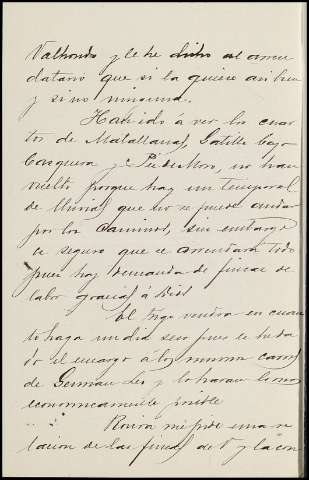 Valhondo y le he dicho al arren
datario que si la quiere asi bien
y si no ninguna.
Han ido á ver los cuar
tos de Matallana, Gatillo bajo
Casquera y Pie de Moro, no han
vuelto porque hay un temporal
de lluvias que no se puede andar
por los caminos, sin embargo
es seguro que se arrendara todo
pues hay demanda de fincas de
labor gracias á Dios
El trigo vendra en cuan
to haga un dia seco pues se ha da
do el encargo a los mismos carros
de German Leo y lo haran lo mas
economicamente posible
Rovira me pide una re
lacion de las fincas de V y la con